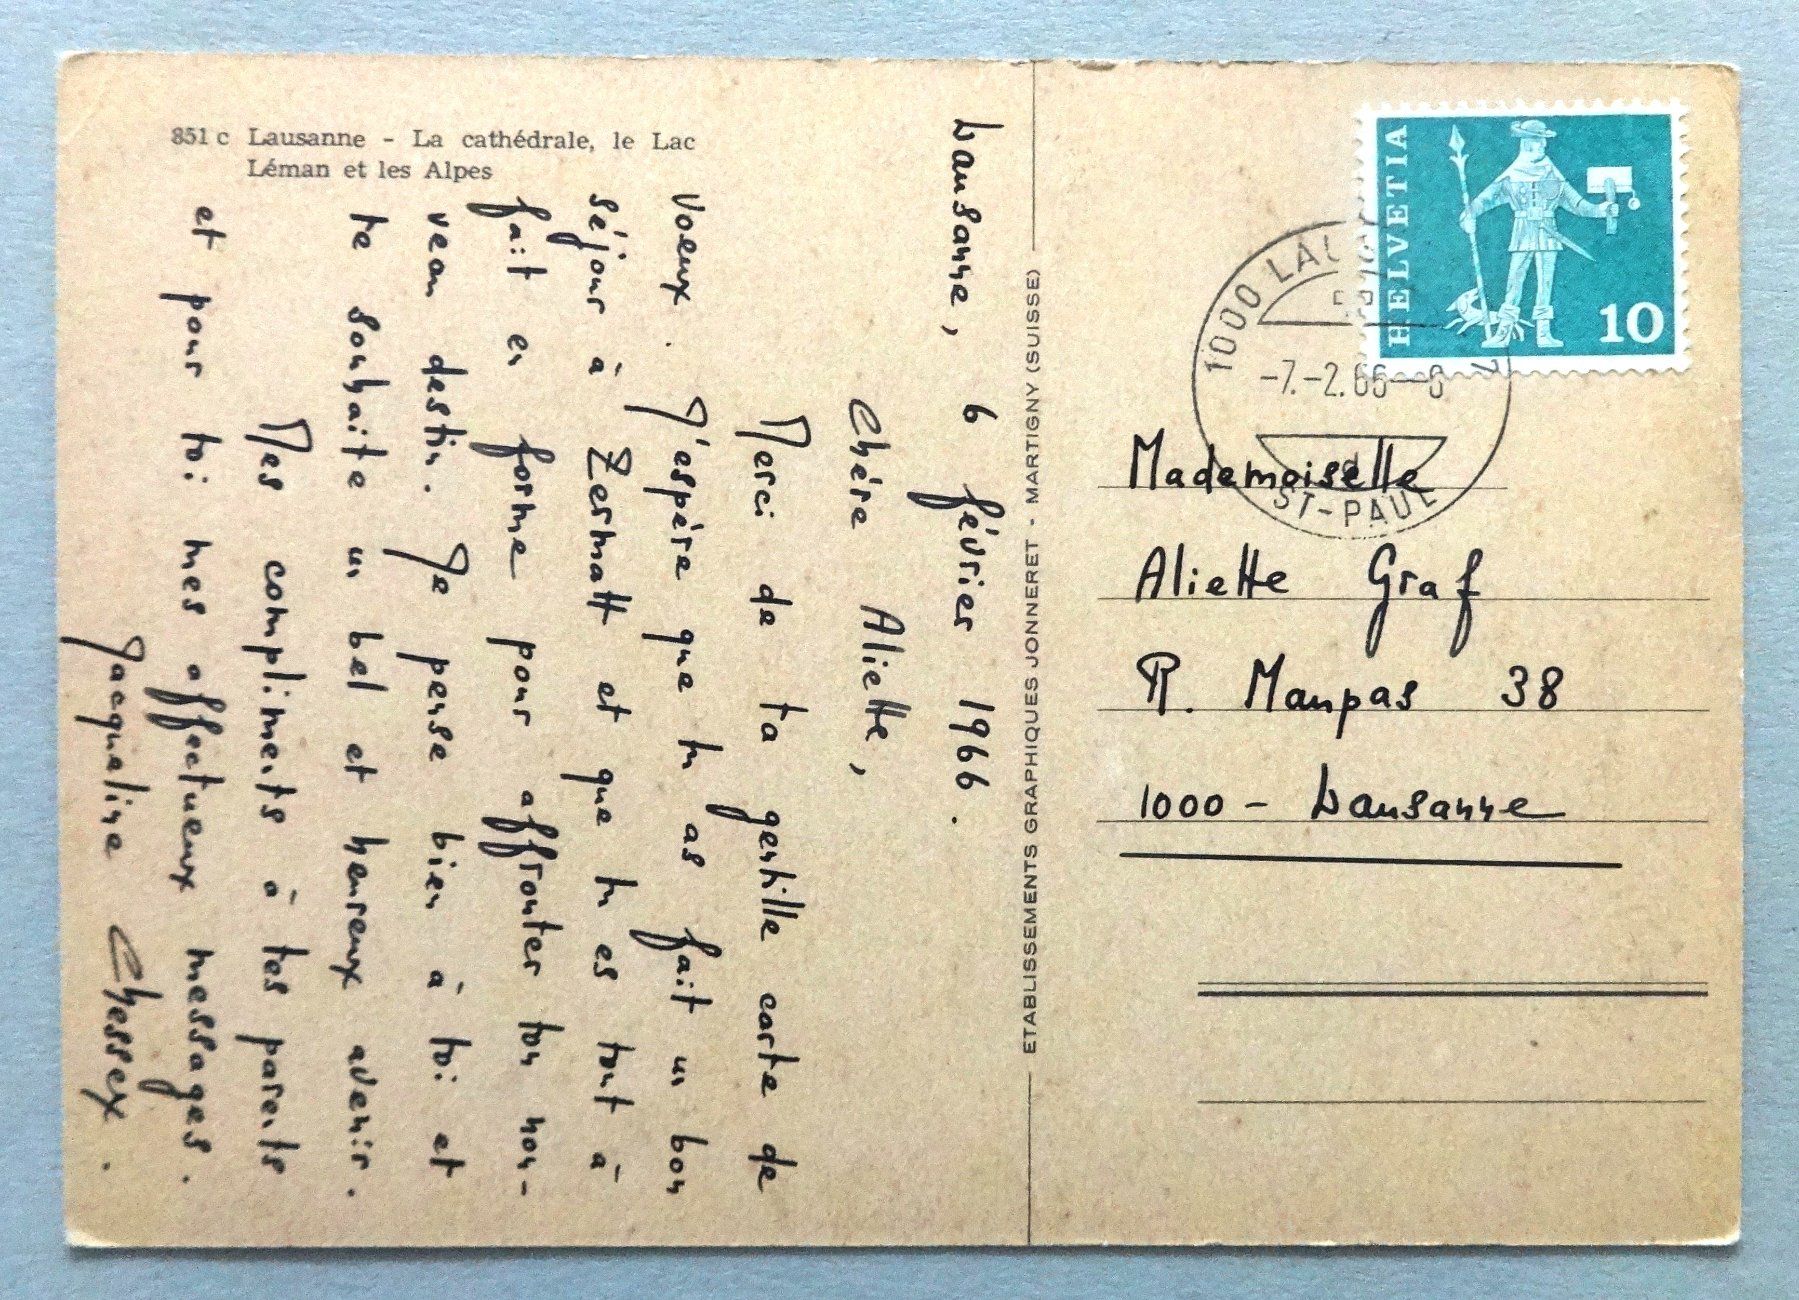 851 c Lausanne - La cathédrale, le Lac
Léman et les Alpes
Lausanne, 6 février 1966.
Chère Aliette,
Merci de ta gentille carte de
voeux. J'espère que tu as fait un bon
séjour à Zermatt et que tu es tout à
fait en forme pour affronter ton nou-
veau destin. Je pense bien à toi et
te souhaite un bel et heureux avenir.
Mes compliments à tes parents
et pour toi mes affectueux messages.
Jacqueline Chessex.
ETABLISSEMENTS GRAPHIQUES JONNERET - MARTIGNY (SUISSE)
HELVETIA
10
1000 LAU
-7.-2.66--8
ST-PAUL
Mademoiselle
Aliette Graf
R. Maupas 38
1000 - Lausanne